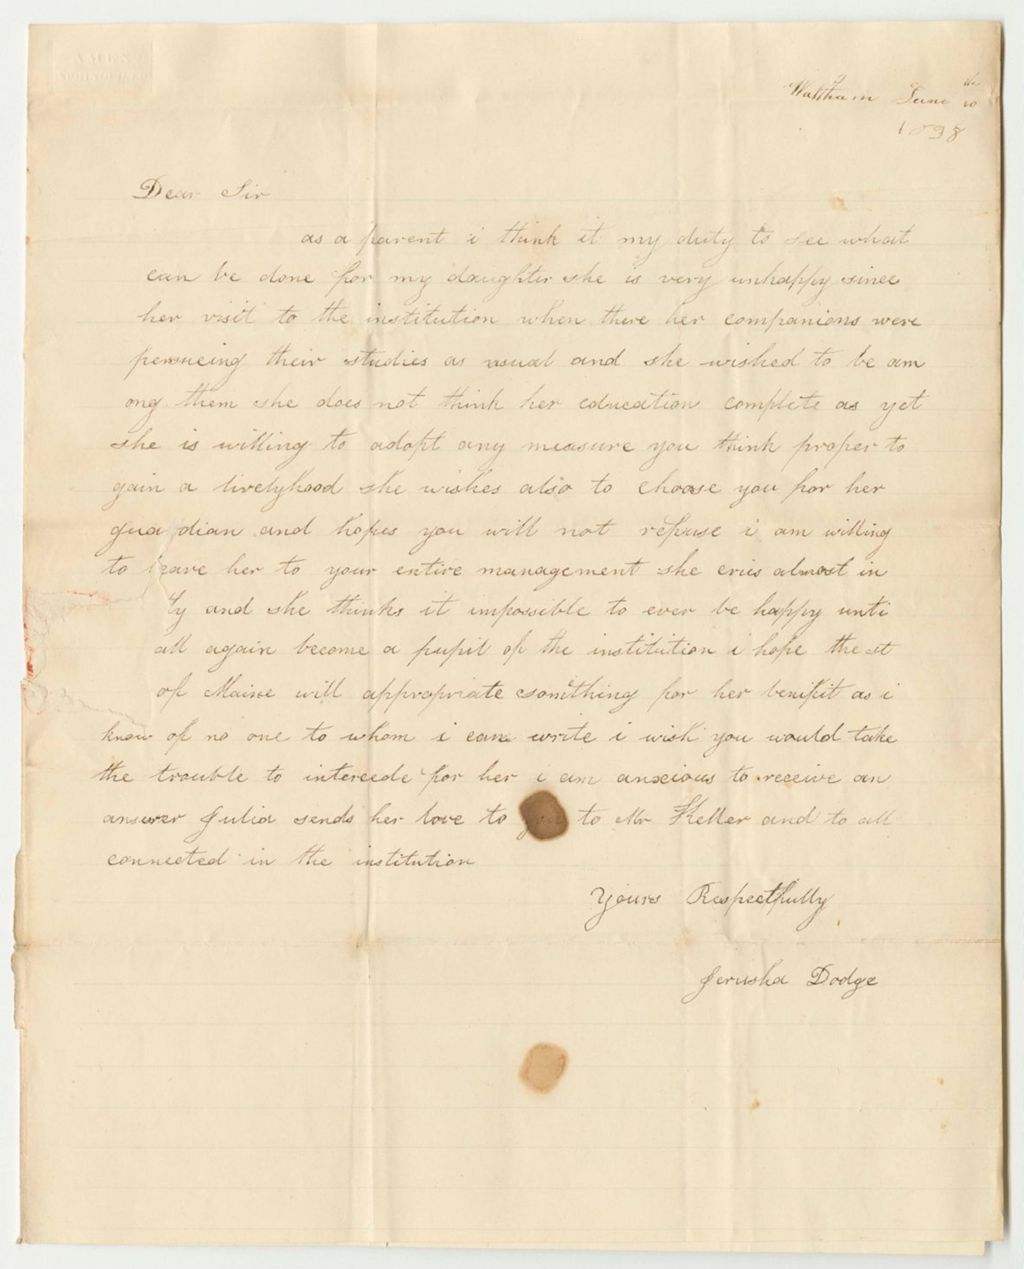 AMES
SPRINGFIELD
Waltham June 10th
1838
Dear Sir
as a parent i think it my duty to see what
can be done for my daughter she is very unhappy since
her visit to the institution when there her companions were
persueing their studies as usual and she wished to be am
ong them she does not think her education complete as yet
she is willing to adopt any measure you think proper to
gain a livelyhood she wishes also to choose you for her
gua dian and hopes you will not refuse i am willing
to leave her to your entire management she cries almost in
ly and she thinks it impossible to ever be happy unti
all again become a pupil of the institution i hope the st
of Maine will appropriate something for her benifit as i
know of no one to whom i can write i wish you would take
the trouble to intercede for her i am anxious to receive an
answer Julia sends her love to you to Mr Keller and to all
connected in the institution
Yours Respectfully
Jerusha Dodge